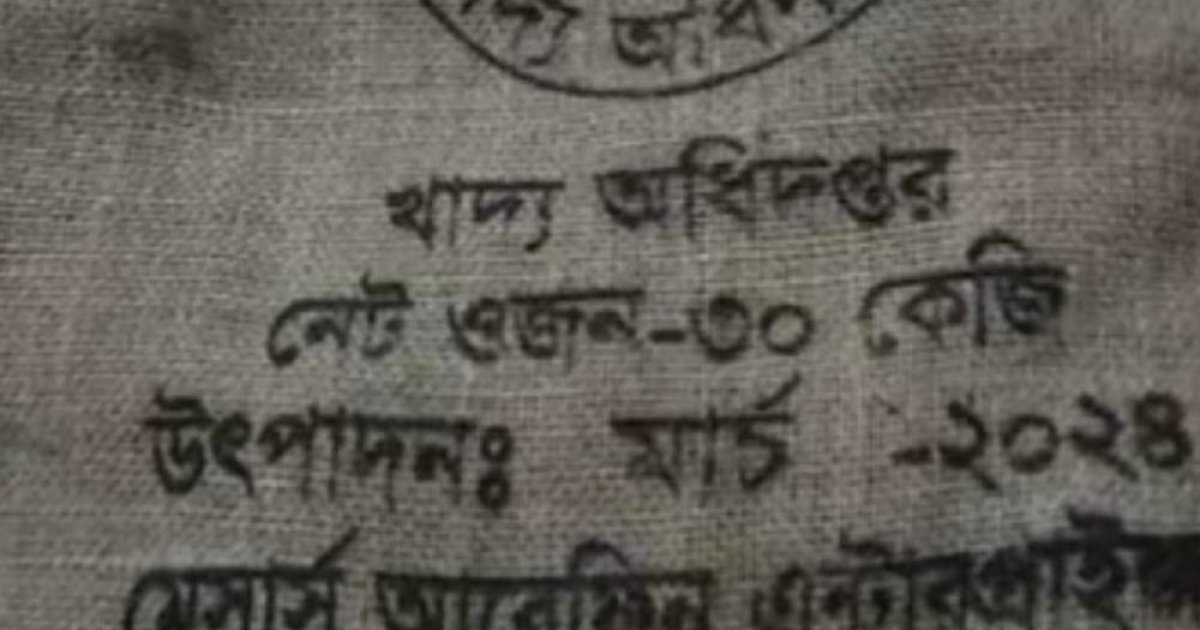 খাদ্য অধিদপ্তর
নেট ওজন-৩০ কেজি
উৎপাদনঃ মার্চ -২০২৪
মেসার্স এন্টারপ্রাইজ